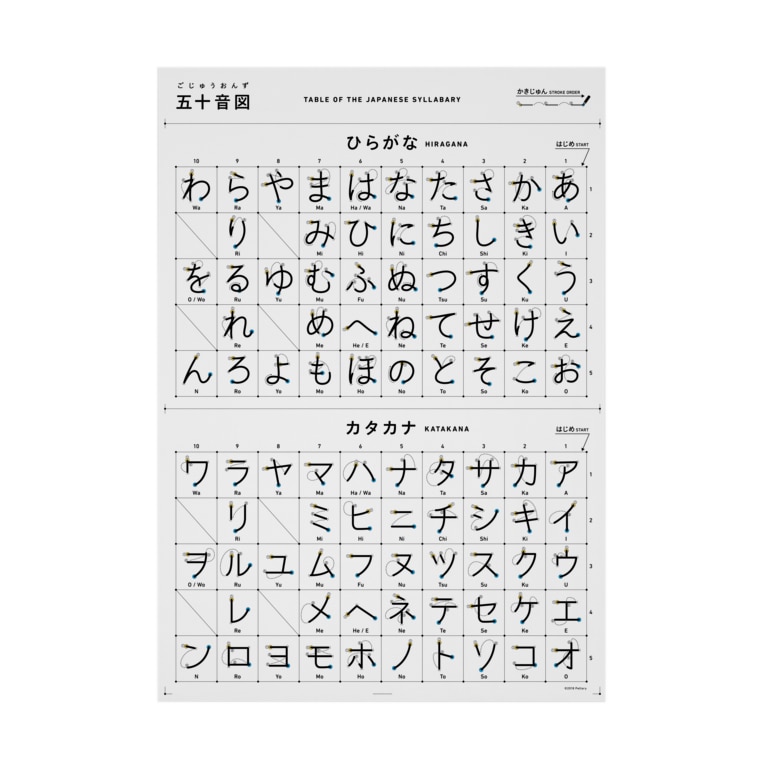 ごじゅうおんず
五十音図
TABLE OF THE JAPANESE SYLLABARY
かきじゅん STROKE ORDER
ひらがな HIRAGANA
はじめ START
10 9 8 7 6 5 4 3 2 1
わ ら や ま は な た さ か あ 1
Wa Ra Ya Ma Ha / Wa Na Ta Sa Ka A
り み ひ に ち し き い 2
Ri Mi Hi Ni Chi Shi Ki I
を る ゆ む ふ ぬ つ す く う 3
O / Wo Ru Yu Mu Fu Nu Tsu Su Ku U
れ め へ ね て せ け え 4
Re Me He / E Ne Te Se Ke E
ん ろ よ も ほ の と そ こ お 5
N Ro Yo Mo Ho No To So Ko O
カタカナ KATAKANA
はじめ START
10 9 8 7 6 5 4 3 2 1
ワ ラ ヤ マ ハ ナ タ サ カ ア 1
Wa Ra Ya Ma Ha / Wa Na Ta Sa Ka A
リ ミ ヒ ニ チ シ キ イ 2
Ri Mi Hi Ni Chi Shi Ki I
ヲ ル ユ ム フ ヌ ツ ス ク ウ 3
O / Wo Ru Yu Mu Fu Nu Tsu Su Ku U
レ メ ヘ ネ テ セ ケ エ 4
Re Me He / E Ne Te Se Ke E
ン ロ ヨ モ ホ ノ ト ソ コ オ 5
N Ro Yo Mo Ho No To So Ko O